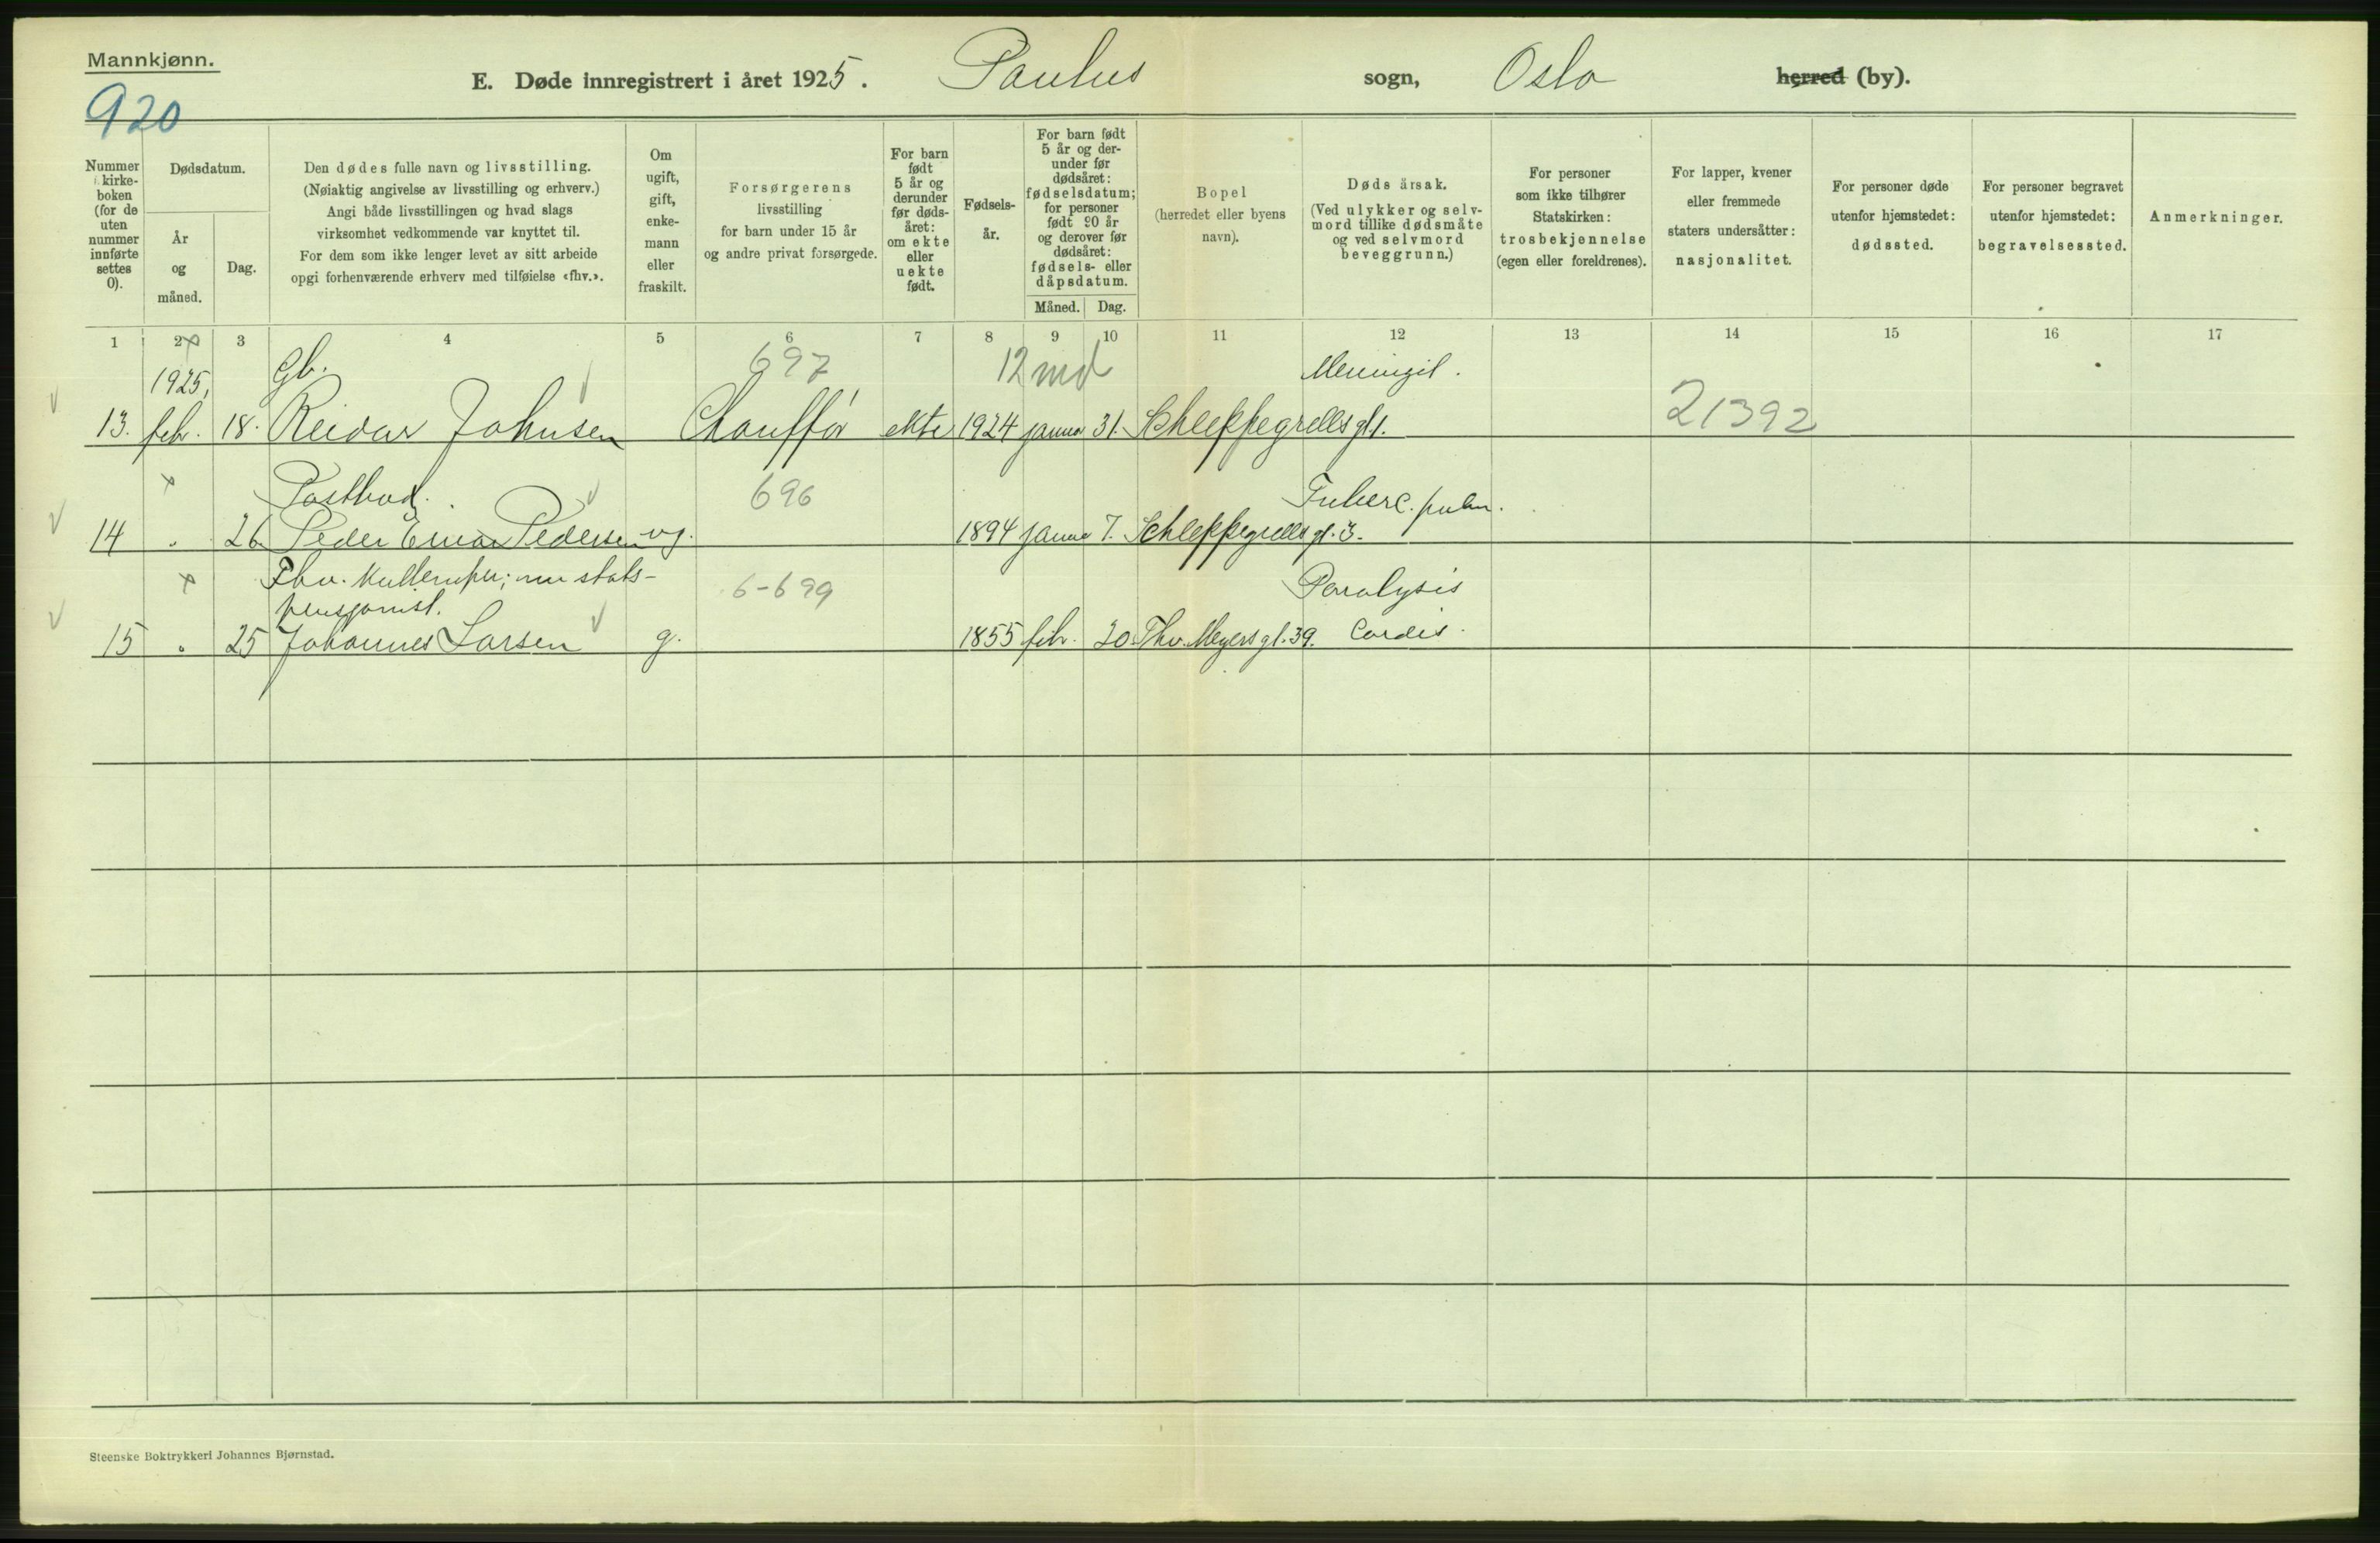 Mannkjønn.
920
E. Døde innregistrert i året 1925. Paulus sogn, Oslo herred (by).
Nummer i kirke-boken (for de uten nummer innførte settes 0).
Dødsdatum.
År og måned.
Dag.
Den dødes fulle navn og livsstilling.
(Nøiaktig angivelse av livsstilling og erhverv.)
Angi både livsstillingen og hvad slags
virksomhet vedkommende var knyttet til.
For dem som ikke lenger levet av sitt arbeide
opgi forhenværende erhverv med tilføielse «fhv.».
Om ugift, gift, enke-mann eller fraskilt.
Forsørgerens
livsstilling
for barn under 15 år
og andre privat forsørgede.
For barn født 5 år og derunder før døds-året: om ekte eller uekte født.
Fødsels-år.
For barn født 5 år og der-under før dødsåret: fødselsdatum; for personer født 20 år og derover før dødsåret: fødsels- eller dåpsdatum.
Måned. Dag.
Bopel
(herredet eller byens
navn).
Døds årsak.
(Ved ulykker og selv-
mord tillike dødsmåte
og ved selvmord
beveggrunn.)
For personer
som ikke tilhører
Statskirken:
trosbekjennelse
(egen eller foreldrenes).
For lapper, kvener
eller fremmede
staters undersåtter:
nasjonalitet.
For personer døde
utenfor hjemstedet:
dødssted.
For personer begravet
utenfor hjemstedet:
begravelsessted.
Anmerkninger.
1 2 3 4 5 6 7 8 9 10 11 12 13 14 15 16 17
1925, Gb. 697 12 md Meningit.
13. febr. 18. Reidar Johnsen Chauffør ekte 1924 januar 31. Schleppegrells gt 1. 21392
Postbud. 696 Tuberc. pulm.
14 " 26. Peder Einar Pedersen ug. 1894 januar 7. Schleppegrells gt. 3.
Fhv. ; nu stats- 6-699 Paralysis
pensjonist.
15 " 25 Johannes Larsen g. 1855 febr. 20. Thv. Meyers gt. 39. Cordis.
Steenske Boktrykkeri Johannes Bjørnstad.